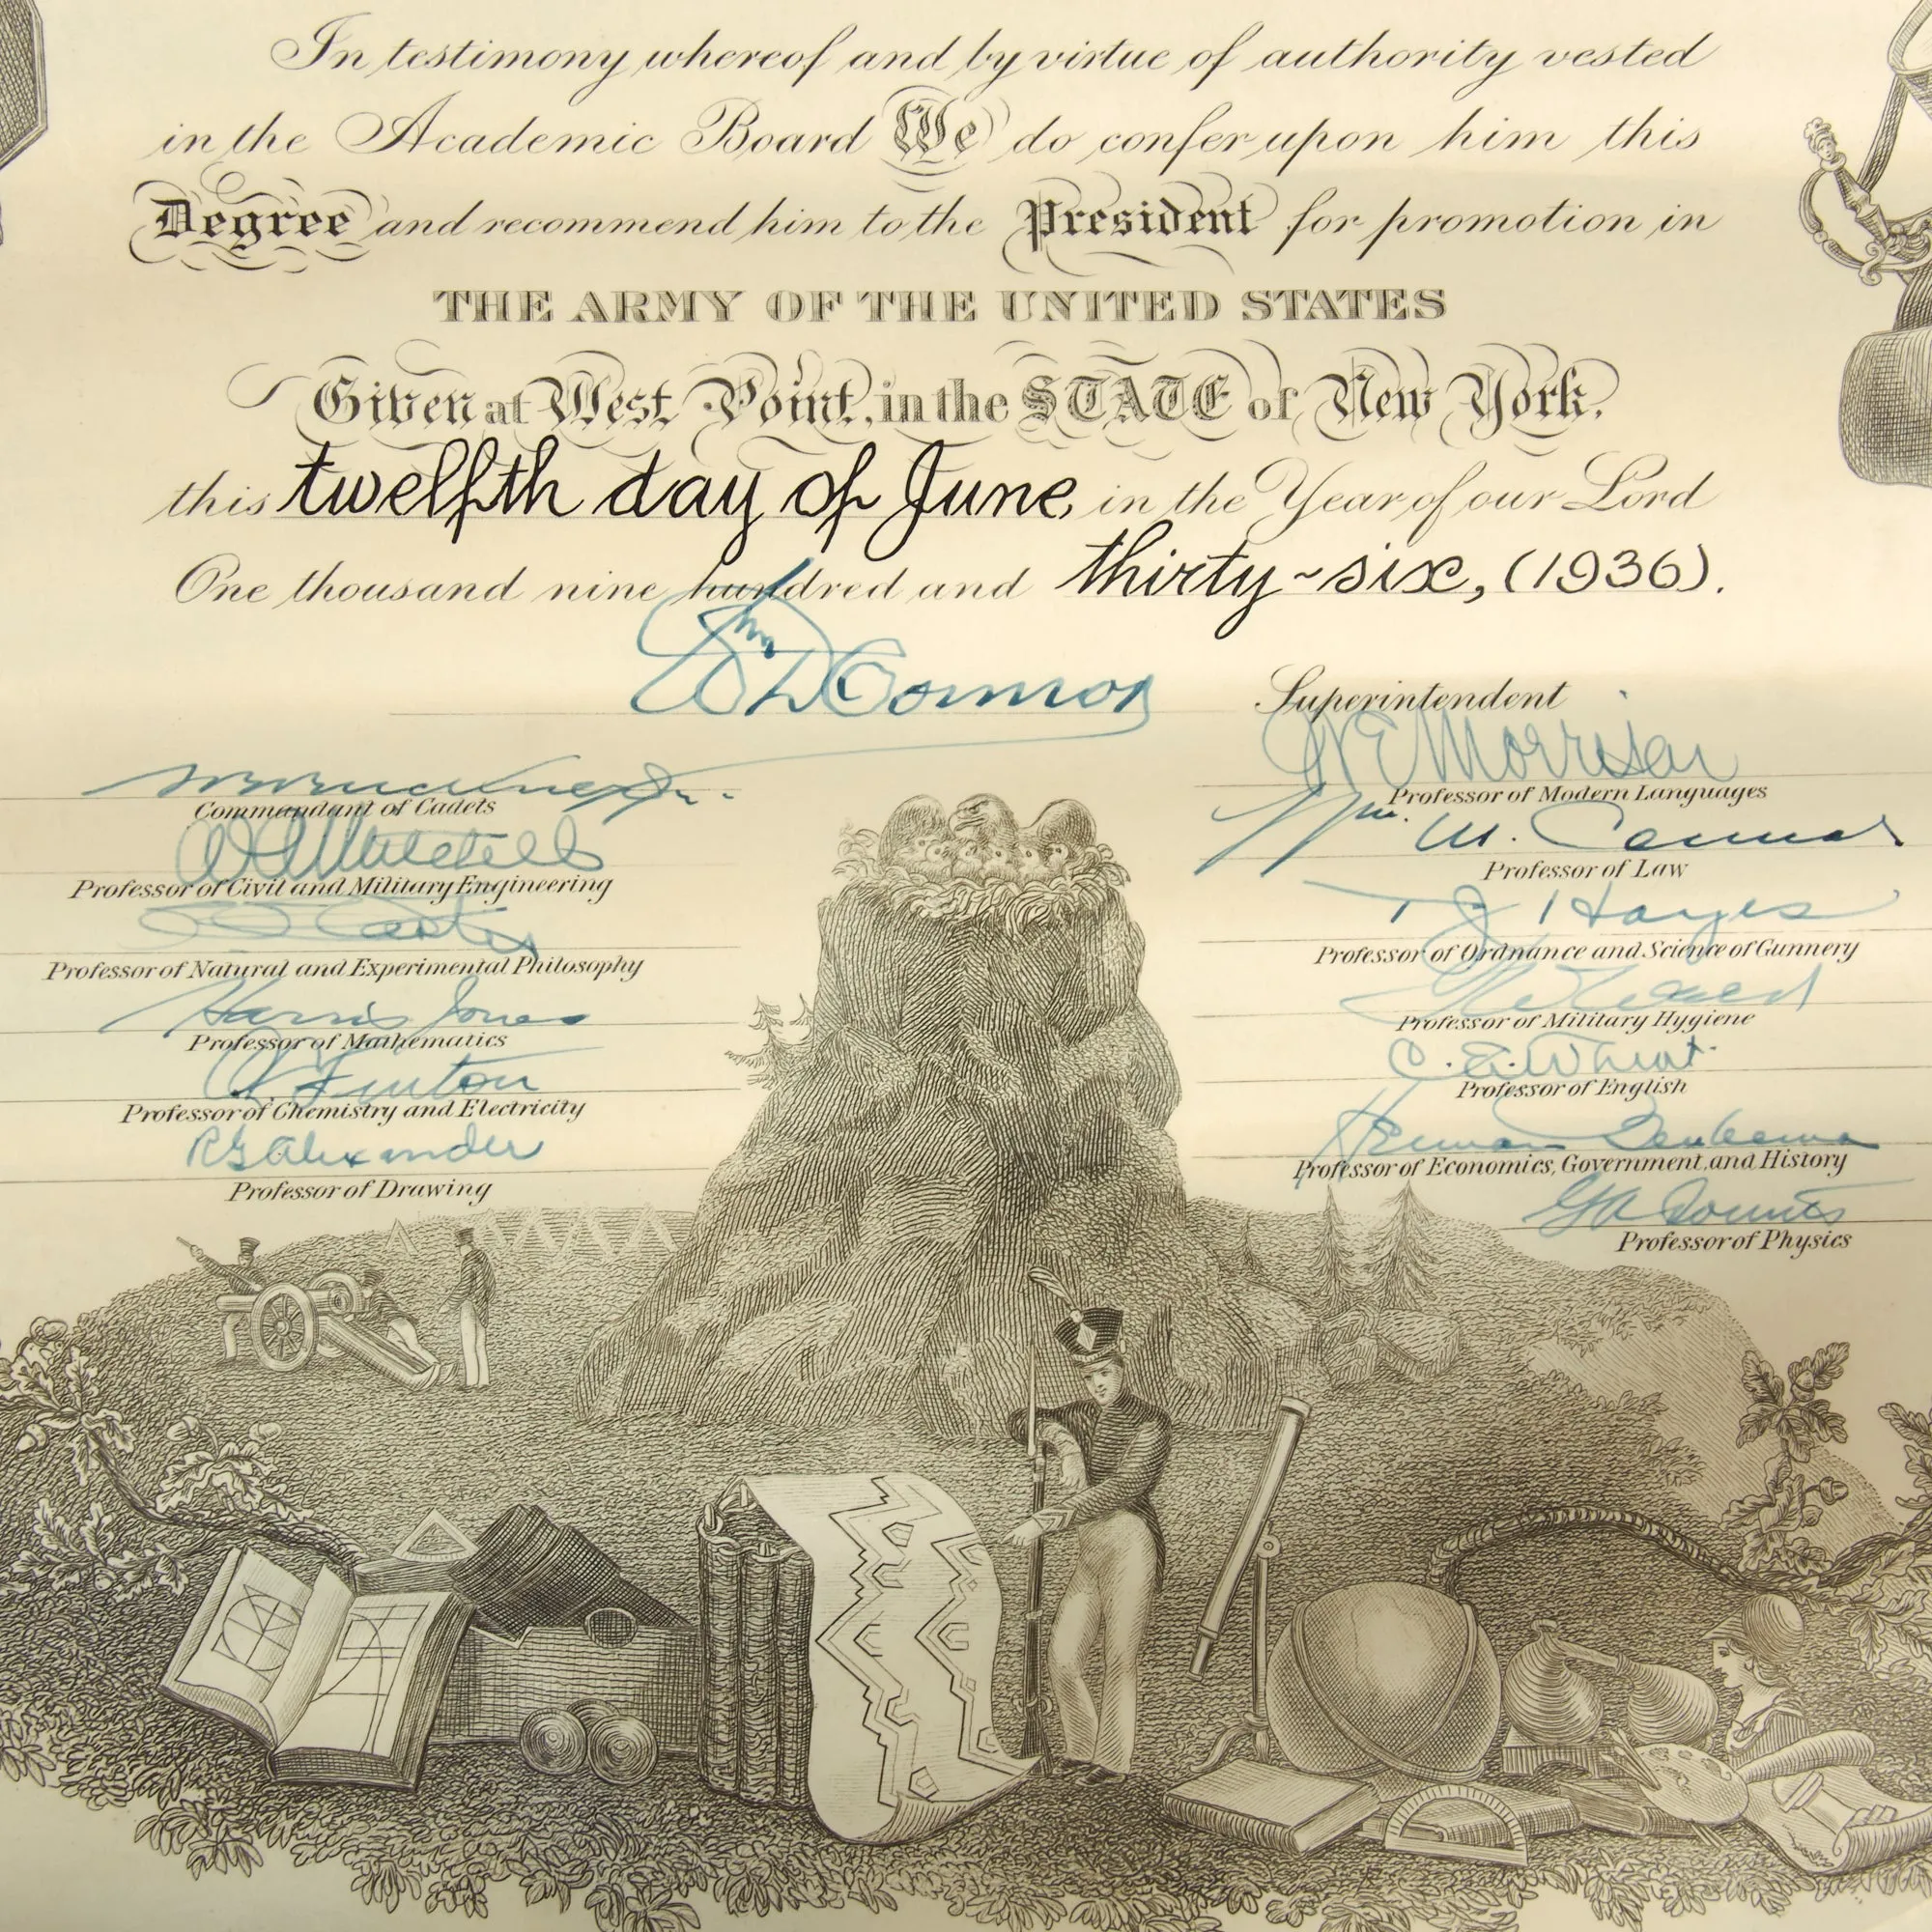 In testimony whereof and by virtue of authority vested
in the Academic Board We do confer upon him this
Degree and recommend him to the President for promotion in
THE ARMY OF THE UNITED STATES
Given at West Point, in the STATE of New York,
this twelfth day of June, in the Year of our Lord
One thousand nine hundred and thirty-six, (1936).
Wm D Connor
Superintendent
Commandant of Cadets
Professor of Civil and Military Engineering
Carter
Professor of Natural and Experimental Philosophy
Harris Jones
Professor of Mathematics
Fenton
Professor of Chemistry and Electricity
R G Alexander
Professor of Drawing
W E Morrison
Professor of Modern Languages
Wm. M. Connor
Professor of Law
T J Hayes
Professor of Ordnance and Science of Gunnery
Professor of Military Hygiene
C. E. Wheat
Professor of English
Herman Beukema
Professor of Economics, Government, and History
G A Counts
Professor of Physics